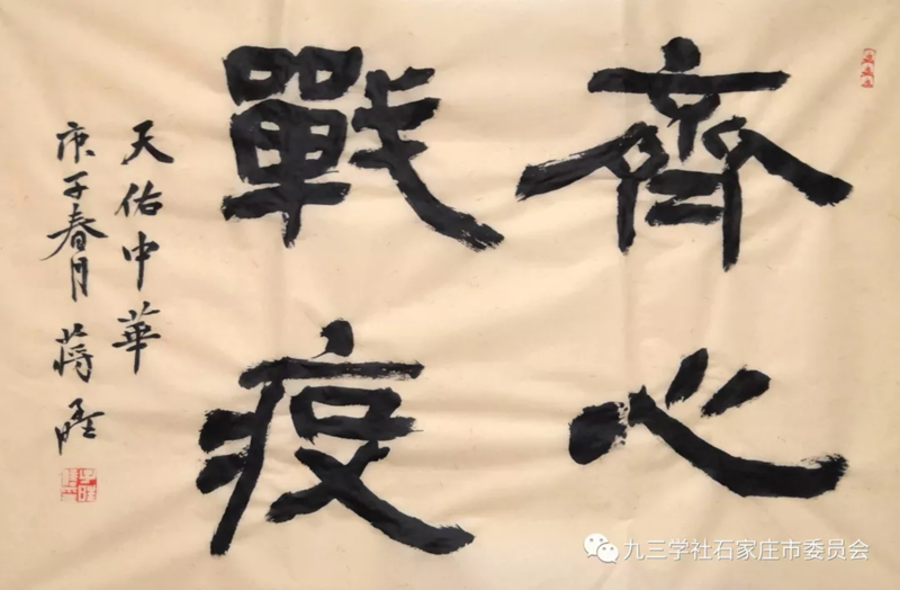 齊心
戰疫
天佑中華
庚子春月 蔣
九三学社石家庄市委员会